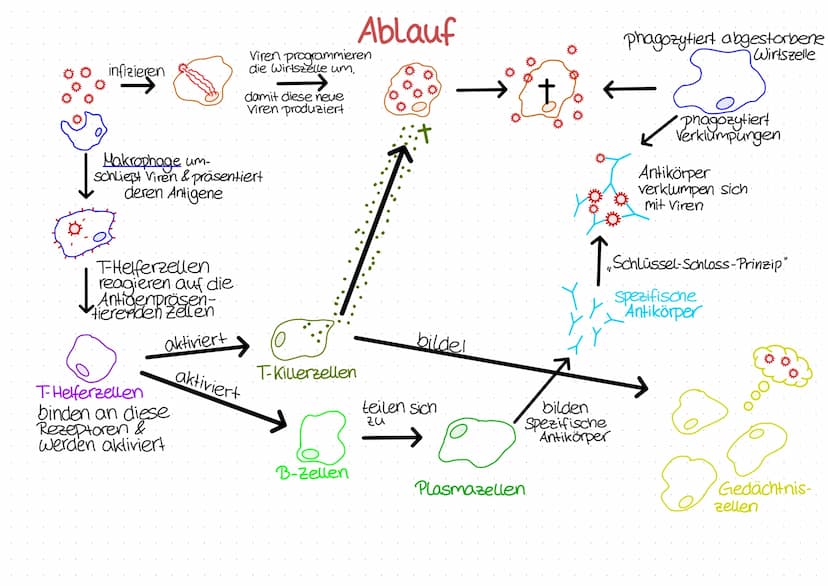 Ablauf
infizieren
Viren programmieren
die Wirtszelle um,
damit diese neue
Viren produziert
phagozytiert abgestorbene
Wirtszelle
phagozytiert
Verklumpungen
Makrophage um-
schliept Viren & präsentiert
deren Antigene
Antikörper
verklumpen sich
mit Viren
T-Helferzellen
reagieren auf die
Antigenpräsen-
tierenden Zellen
„Schlüssel-Schloss-Prinzip"
spezifische
Antikörper
aktiviert
T-Killerzellen
bildet
T-Helferzellen
binden an diese
Rezeptoren &
werden aktiviert
aktiviert
teilen sich
zu
bilden
Spezifische
Antikörper
B-Zellen
Plasmazellen
Gedächtnis-
zellen